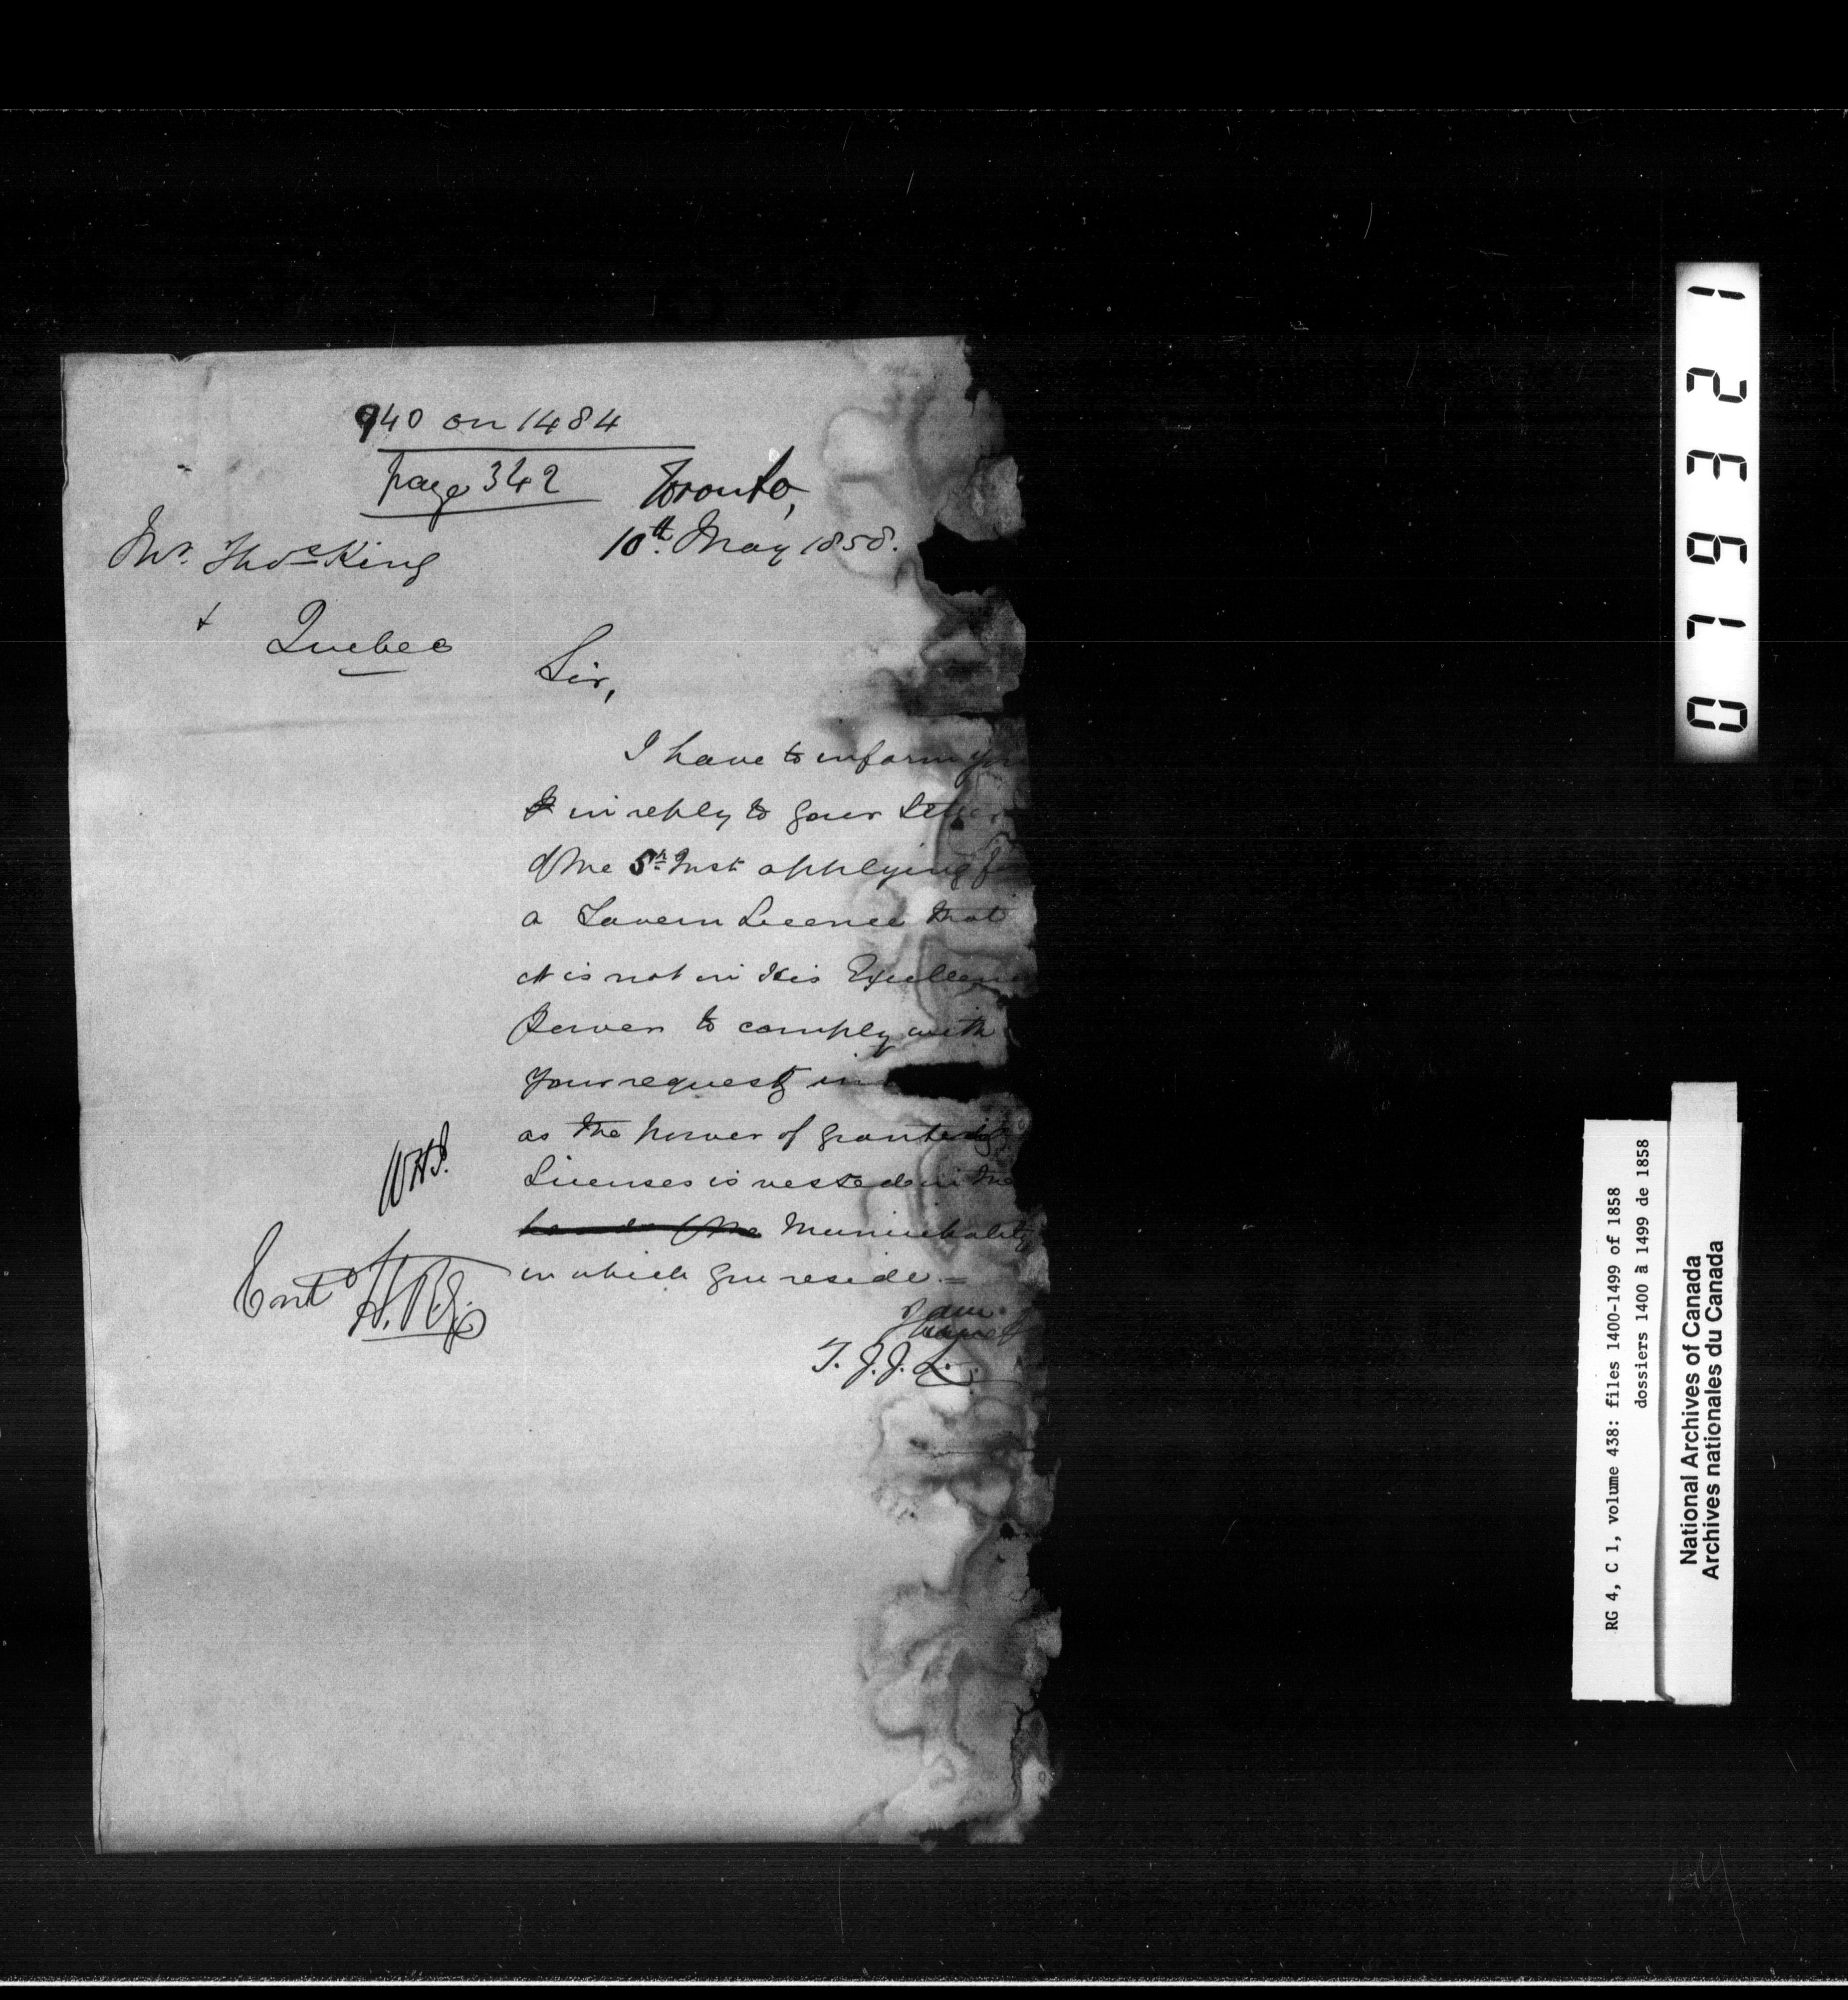 940 on 1484
page 342
Toronto,
10th. May 1858.
Mr. Thos King
Quebec
Sir,
I have to inform you
in reply to your Letter
of the 5th Inst applying
a Tavern Licence that
it is not in His Excellen
Power to comply with
your request in
as the power of granting
Licenses is vested in the
Municipality
in which you reside.=
I am
T. J. J. L.
WHJ.
Entd
RG 4, C 1, volume 438: files 1400-1499 of 1858
dossiers 1400 à 1499 de 1858
National Archives of Canada
Archives nationales du Canada
079321